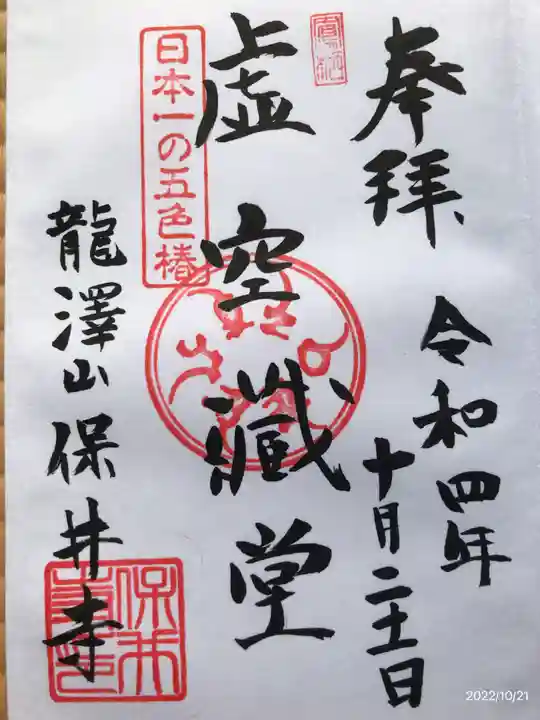 奉拝
令和四年
十月二十一日
虚空蔵堂
日本一の五色椿
龍澤山保井寺
2022/10/21